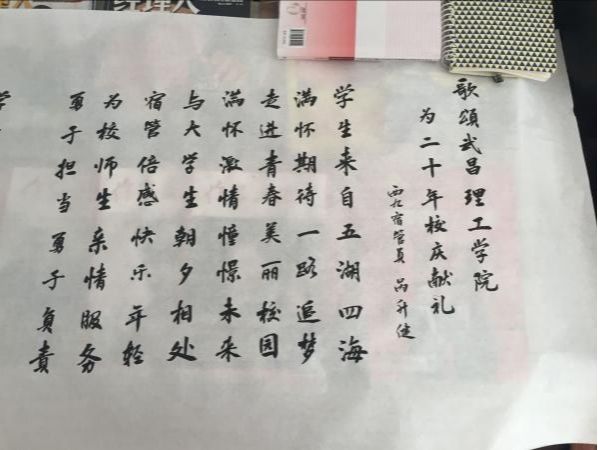 歌颂武昌理工学院
为二十年校庆献礼
西九宿管员 吕升健
学生来自五湖四海
满怀期待一路追梦
走进青春美丽校园
满怀激情憧憬未来
与大学生朝夕相处
宿管倍感快乐年轻
为校师生亲情服务
勇于担当勇于负责
学